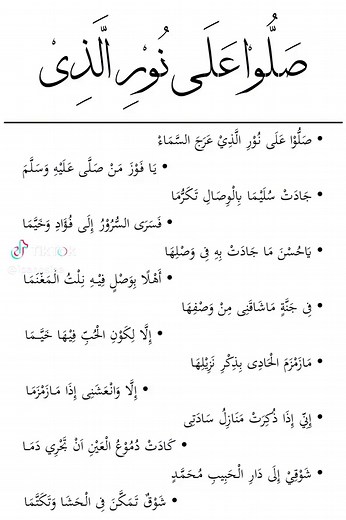 صَلُّوْا عَلَى نُوْرِ الَّذِيْ
• صَلُّوْا عَلَى نُوْرِ الَّذِيْ عَرَجَ السَّمَاءْ
• يَا فَوْزَ مَنْ صَلَّى عَلَيْهِ وَسَلَّمَ
• جَادَتْ سُلَيْمَا بِالْوِصَالِ تَكَرُّمَا
• فَسَرَى السُّرُوْرُ إِلَى فُؤَادِ وَخَيَّمَا
• يَاحُسْنَ مَا جَادَتْ بِهِ فِى وَصْلِهَا
• أَهْلًا بِوَصْلٍ فِيْهِ نِلْتُ الْمَغْنَمَا
• فِى جَنَّةٍ مَاشَاقَنِى مِنْ وَصْفِهَا
• إِلَّا لِكَوْنِ الْحُبِّ فِيْهَا خَيَّمَا
• مَازَمْزَمَ الْحَادِى بِذِكْرِ نَزِيْلِهَا
• إِلَّا وَانْعَشَنِى إِذَا مَازَمْزَمَا
• إِنِّي إِذَا ذُكِرَتْ مَنَازِلُ سَادَتِى
• كَادَتْ دُمُوْعُ الْعَيْنِ اَنْ تَجْرِي دَمَا
• شَوْقِيْ إِلَى دَارِ الْحَبِيبِ مُحَمَّدٍ
• شَوْقٌ تَمَكَّنَ فِى الْحَشَا وَتَكَتَّمَا